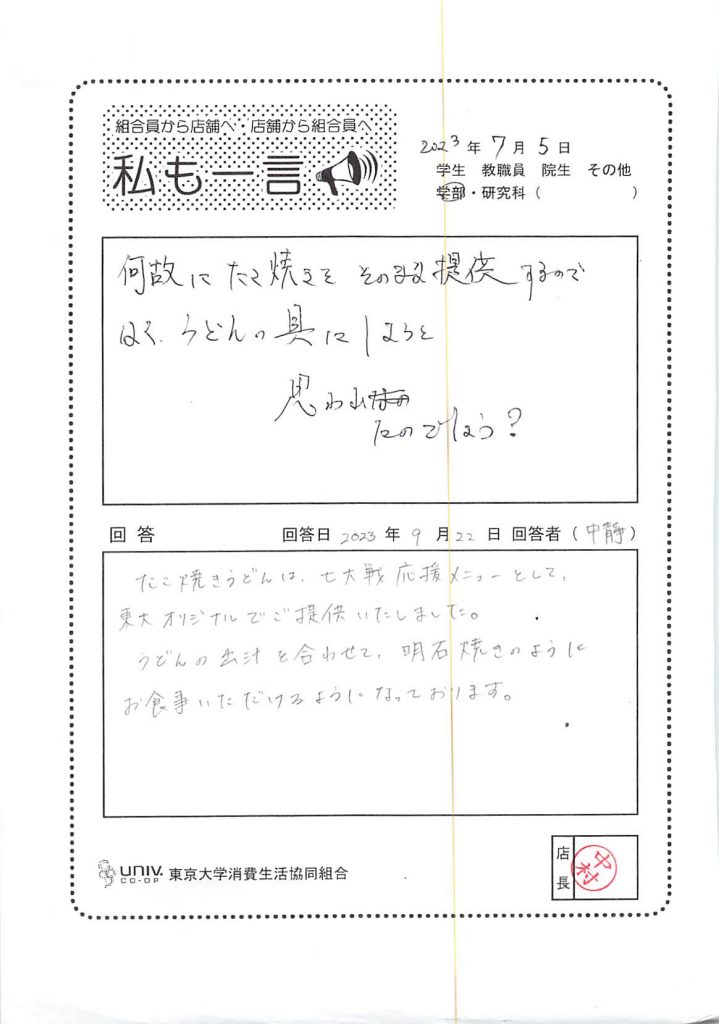 組合員から店舗へ・店舗から組合員へ
私も一言
2023年7月5日
学生 教職員 院生 その他
学部・研究科( )
何故にたこ焼きをそのまま提供するので
はなく、うどんの具にしようと
思われ
たのでしょう?
回答 回答日 2023年9月22日 回答者(中静)
たこ焼きうどんは、七大戦応援メニューとして、
東大オリジナルでご提供いたしました。
うどんの出汁と合わせて、明石焼きのように
お食事いただけるようになっております。
UNIV.
CO-OP
東京大学消費生活協同組合
店長
中村